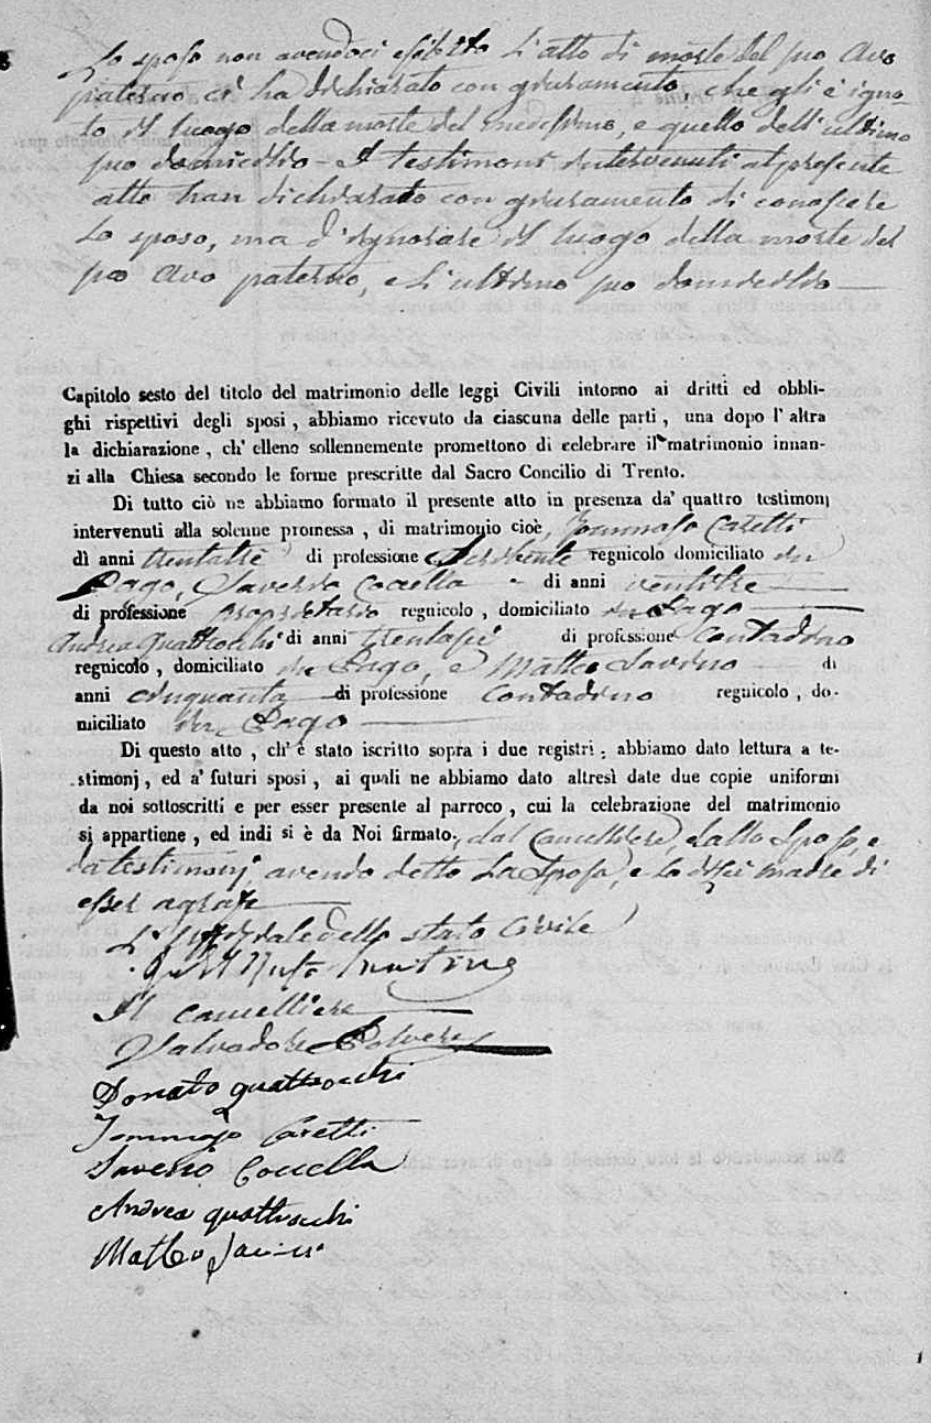 Lo sposo non avendoci esibito l'atto di morte del suo Avo
paterno ci ha dichiarato con giuramento, che gli è igno-
to il luogo della morte del medesimo, e quello dell'ultimo
suo domicilio - I testimoni intervenuti al presente
atto han dichiarato con giuramento di conoscere
Lo sposo, ma d'ignorare il luogo della morte del
suo Avo paterno, e l'ultimo suo domicilio
Capitolo sesto del titolo del matrimonio delle leggi Civili intorno ai dritti ed obbli-
ghi rispettivi degli sposi, abbiamo ricevuto da ciascuna delle parti, una dopo l'altra
la dichiarazione, ch'elleno sollennemente promettono di celebrare il matrimonio innan-
zi alla Chiesa secondo le forme prescritte dal Sacro Concilio di Trento.
Di tutto ciò ne abbiamo formato il presente atto in presenza da' quattro testimonj
intervenuti alla solenne promessa, di matrimonio cioè, Tommaso Caretti
di anni trentatre di professione Serviente regnicolo domiciliato in
Pago, Saverio Cocella di anni ventitre
di professione proprietario regnicolo, domiciliato in Pago
Andrea Quattrocchi di anni trentasei di professione Contadino
regnicolo, domiciliato in Pago, e Matteo Savino di
anni cinquanta di professione Contadino regnicolo, do-
miciliato in Pago
Di questo atto, ch'è stato iscritto sopra i due registri: abbiamo dato lettura a te-
stimonj, ed a' futuri sposi, ai quali ne abbiamo dato altresì date due copie uniformi
da noi sottoscritti e per esser presente al parroco, cui la celebrazione del matrimonio
si appartiene, ed indi si è da Noi firmato, dal Cancelliere, dallo Sposo, e
da testimonj avendo detto La Sposa, e la di lei madre di
esser
L'Uffiziale dello stato Civile
Il Cancelliere
Salvadore Polvere
Donato quattrocchi
Tommaso Caretti
Saverio Cocella
Andrea quattrocchi
Matteo Savino